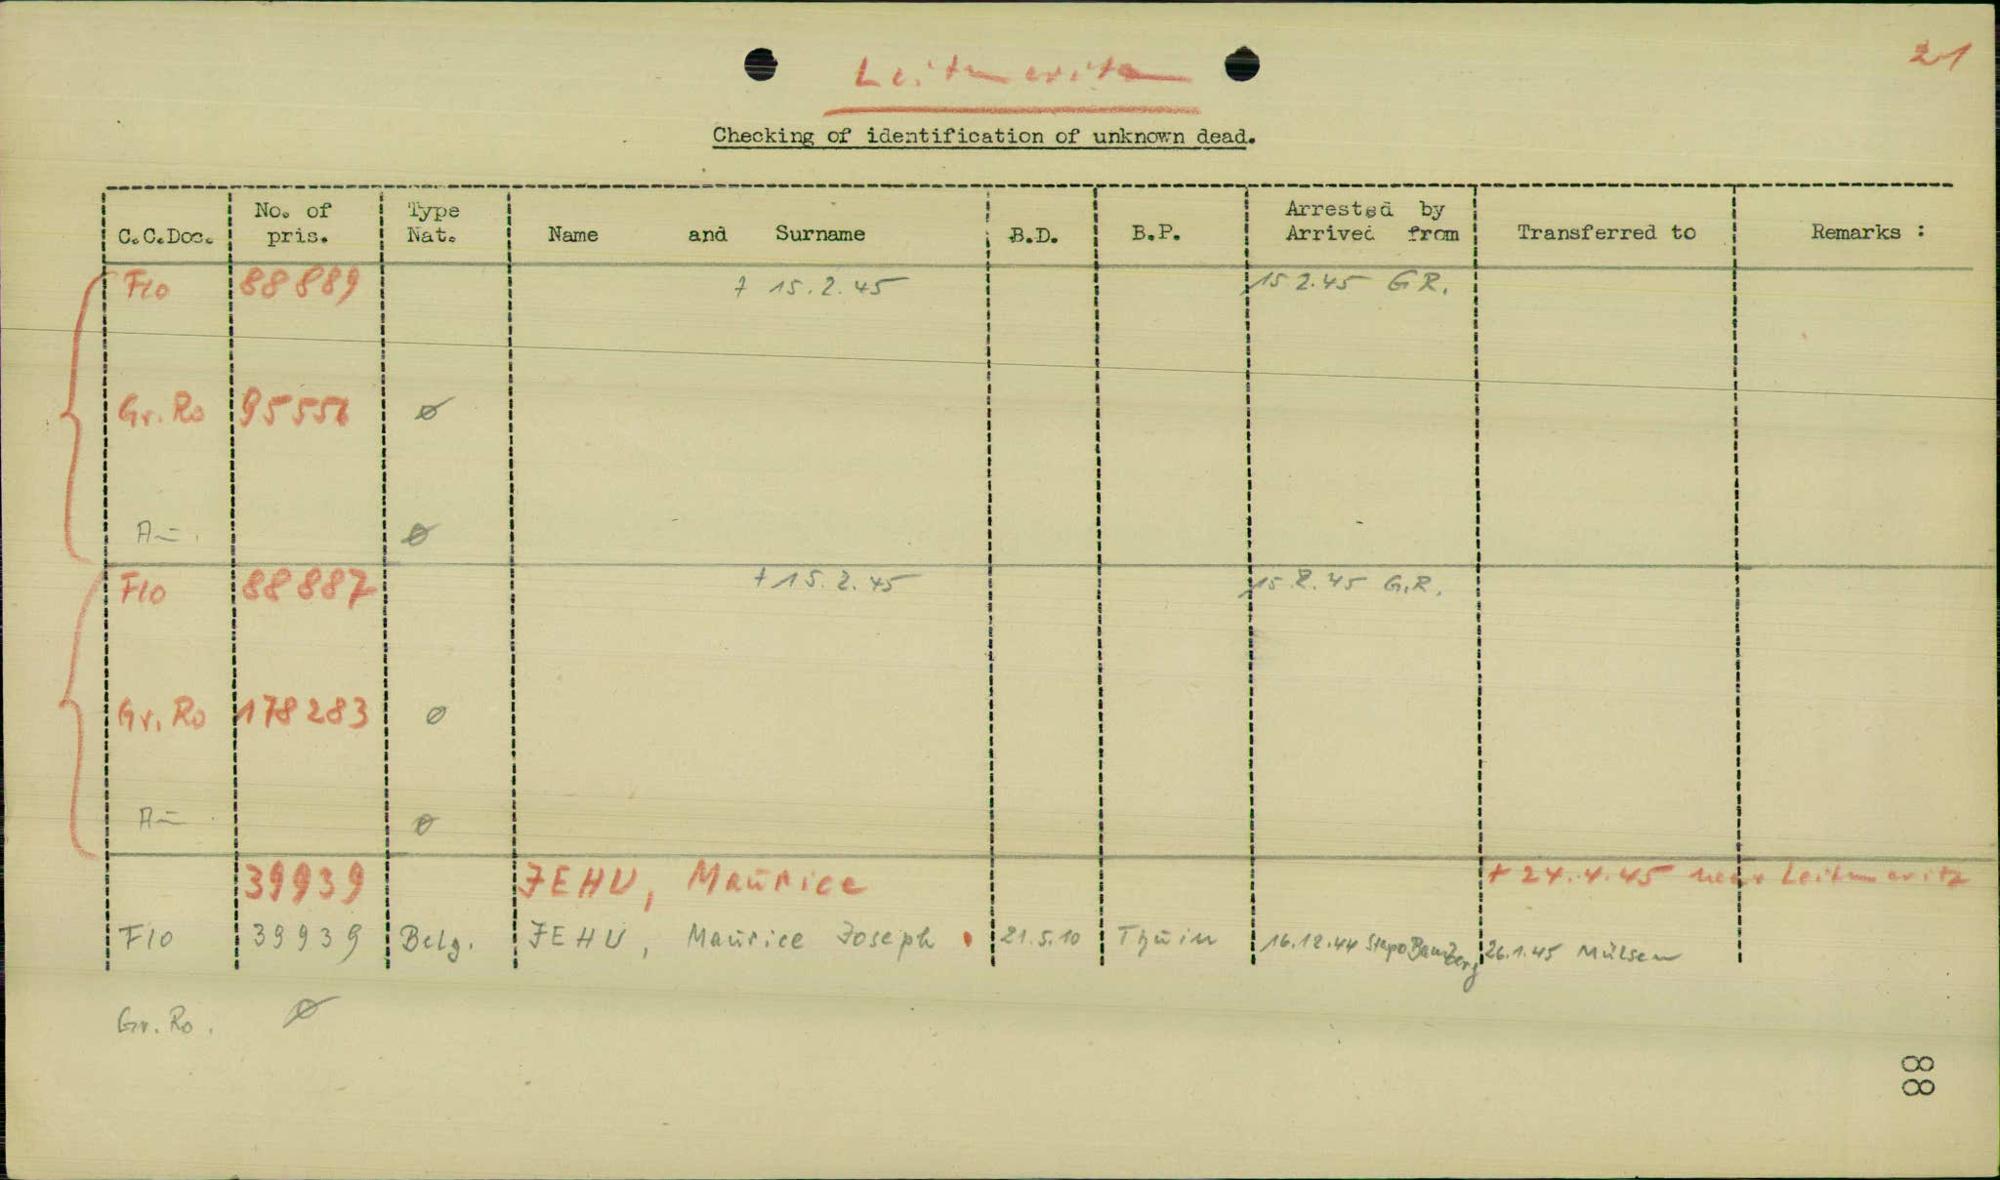 Leitmeritz
21
Checking of identification of unknown dead.
C.C.Doc. No. of pris. Type Nat. Name and Surname B.D. B.P. Arrested by Arrived from Transferred to Remarks :
Flo 88889 + 15.2.45 15.2.45 GR.
Gr. Ro 95556 ø
Au. ø
Flo 88887 + 15.2.45 15.2.45 G.R.
Gr. Ro 178283 ø
Au. ø
39939 JEHU, Maurice + 24.4.45 near Leitmeritz
Flo 39939 Belg. JEHU, Maurice Joseph 21.5.10 Thuin 16.12.44 Stapo Bamberg 26.1.45 Mülsen
Gr. Ro. ø
88